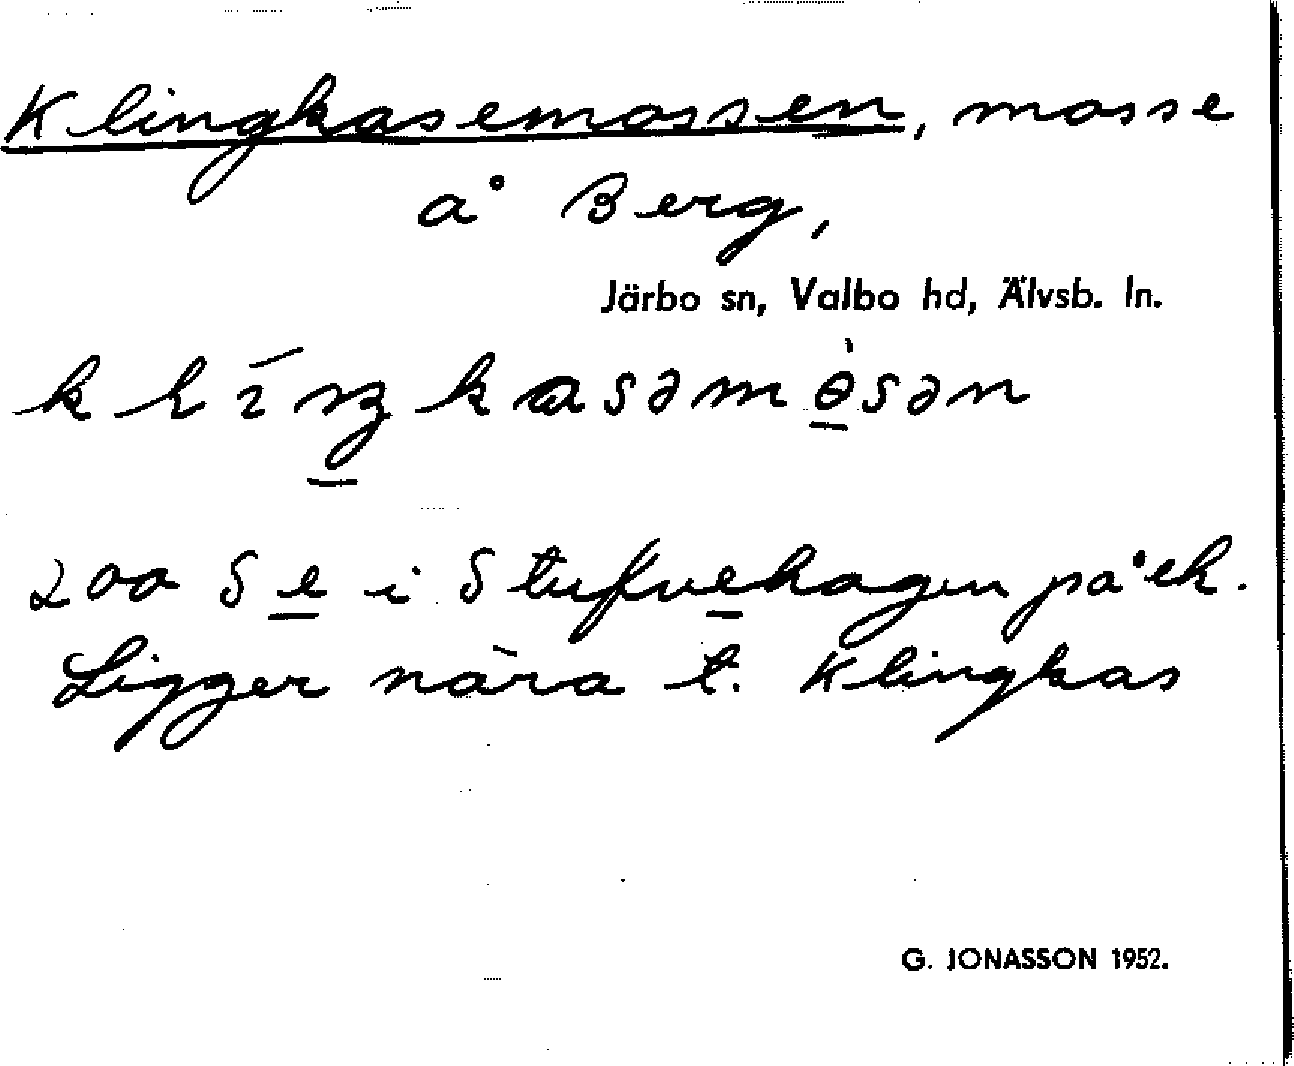 Klingkasemossen, mosse
å Berg,
Järbo sn, Valbo hd, Älvsb. ln.
200 S e i Stufvehagen på ek.
Ligger nära t. Klingkas
G. JONASSON 1952.